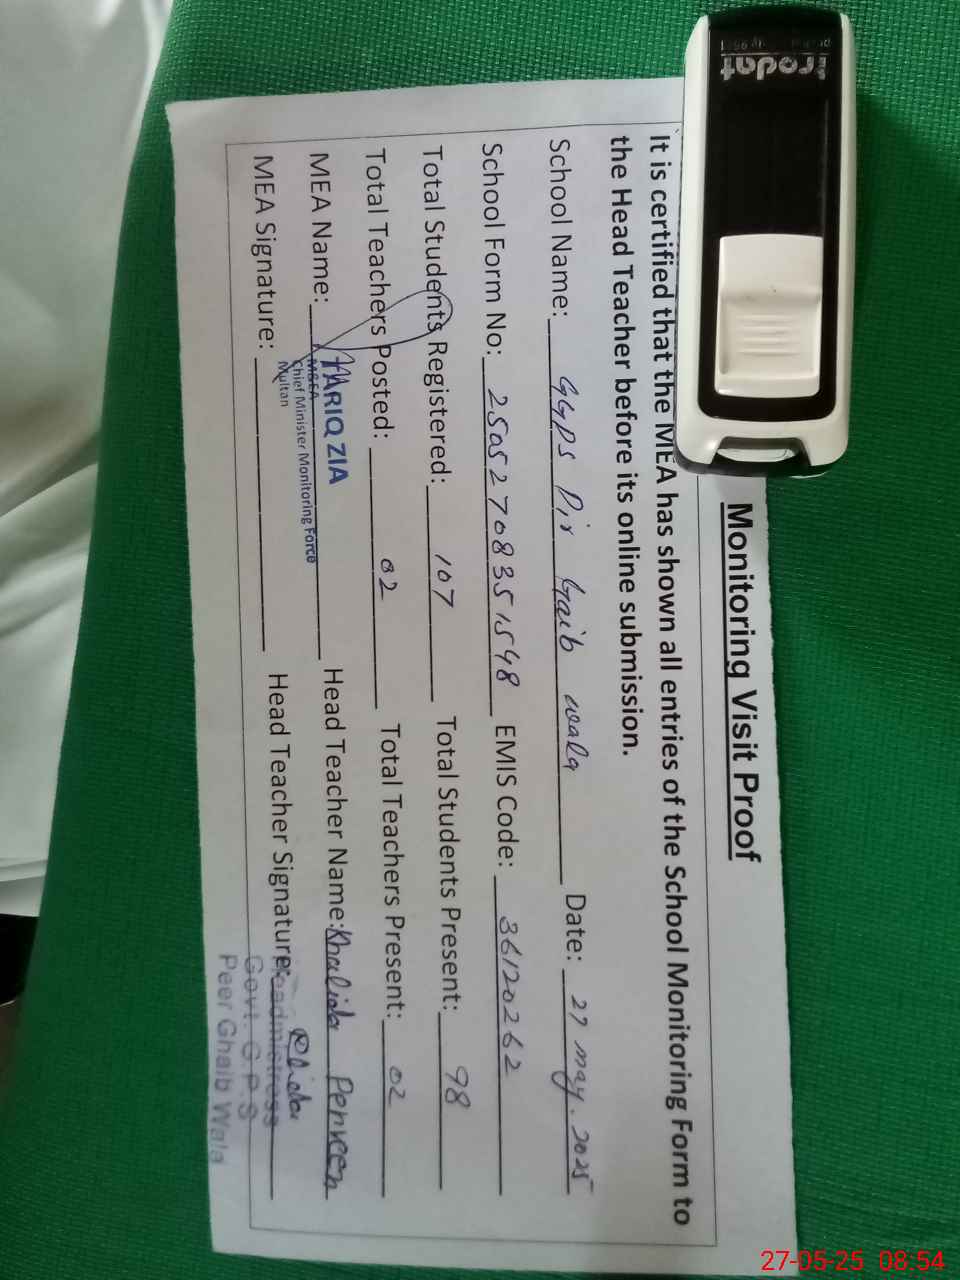 Monitoring Visit Proof
It is certified that the MEA has shown all entries of the School Monitoring Form to
the Head Teacher before its online submission.
School Name: GGPS Pir Gaib wala Date: 27 may. 2025
School Form No: 25052708351548 EMIS Code: 36120262
Total Students Registered: 107 Total Students Present: 98
Total Teachers Posted: 02 Total Teachers Present: 02
MEA Name: TARIQ ZIA Head Teacher Name: Khalida Perveen
M&EA
Chief Minister Monitoring Force
Multan
MEA Signature: Head Teacher Signature:
Headmistress
Govt. G.P.S
Peer Ghaib Wala
27-05-25 08:54